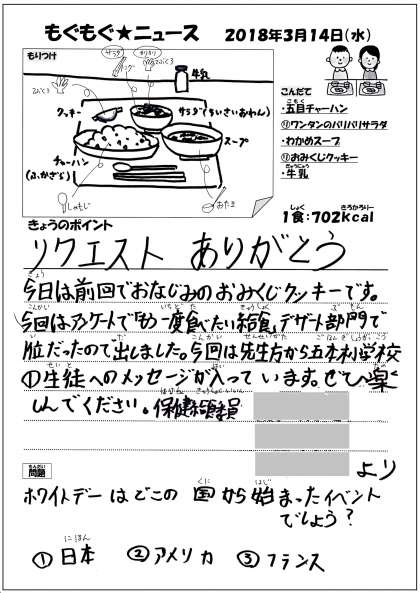 もぐもぐ★ニュース 2018年3月14日(水)
もりつけ
サラダ
パリパリ
トング
ふくろ
てぶくろ
牛乳
クッキー
サラダ(ちいさいおわん)
スープ
チャーハン
(ふかざら)
しゃもじ
おたま
こんだて
・五目チャーハン
ワンタンのパリパリサラダ
・わかめスープ
おみくじクッキー
・牛乳
1食:702kcal
きょうのポイント
リクエスト ありがとう
今日は前回でおなじみのおみくじクッキーです。
今回はアンケートで「もう一度食べたい給食」デザート部門で
1位だったので出しました。今回は先生方から五本木小学校
の生徒へのメッセージが入っています。ぜひ楽
しんでください。保健給食委員
より
問題
ホワイトデーはどこの国から始まったイベント
でしょう?
①日本 ②アメリカ ③フランス